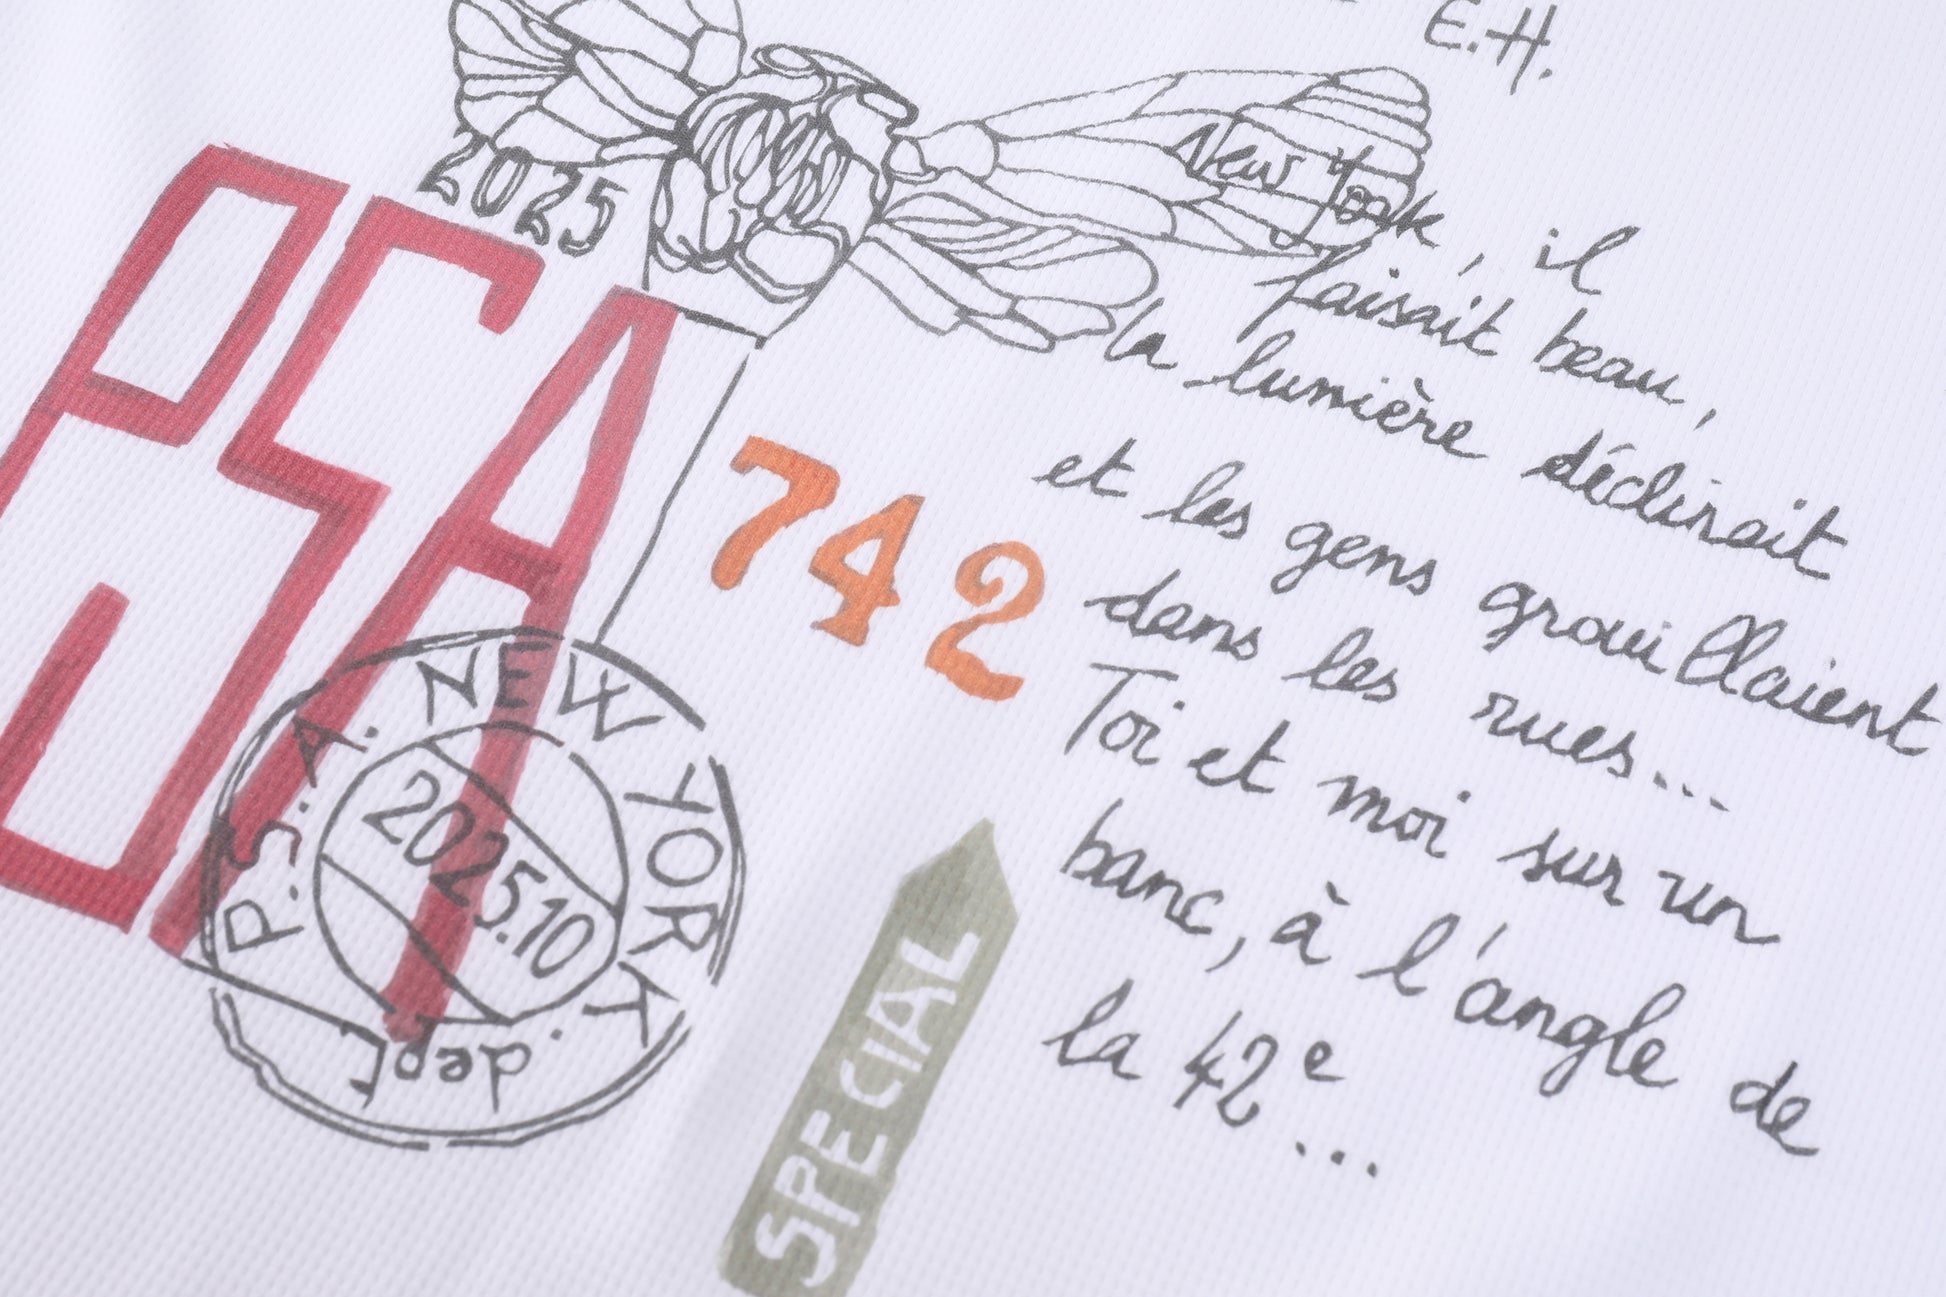 E.H.
2025
PSA
New York, il
faisait beau,
la lumière déclinait
et les gens grouillaient
dans les rues...
Toi et moi sur un
banc, à l'angle de
la 42e...
742
P.S.A. NEW YORK.
2025.10
dept
SPECIAL